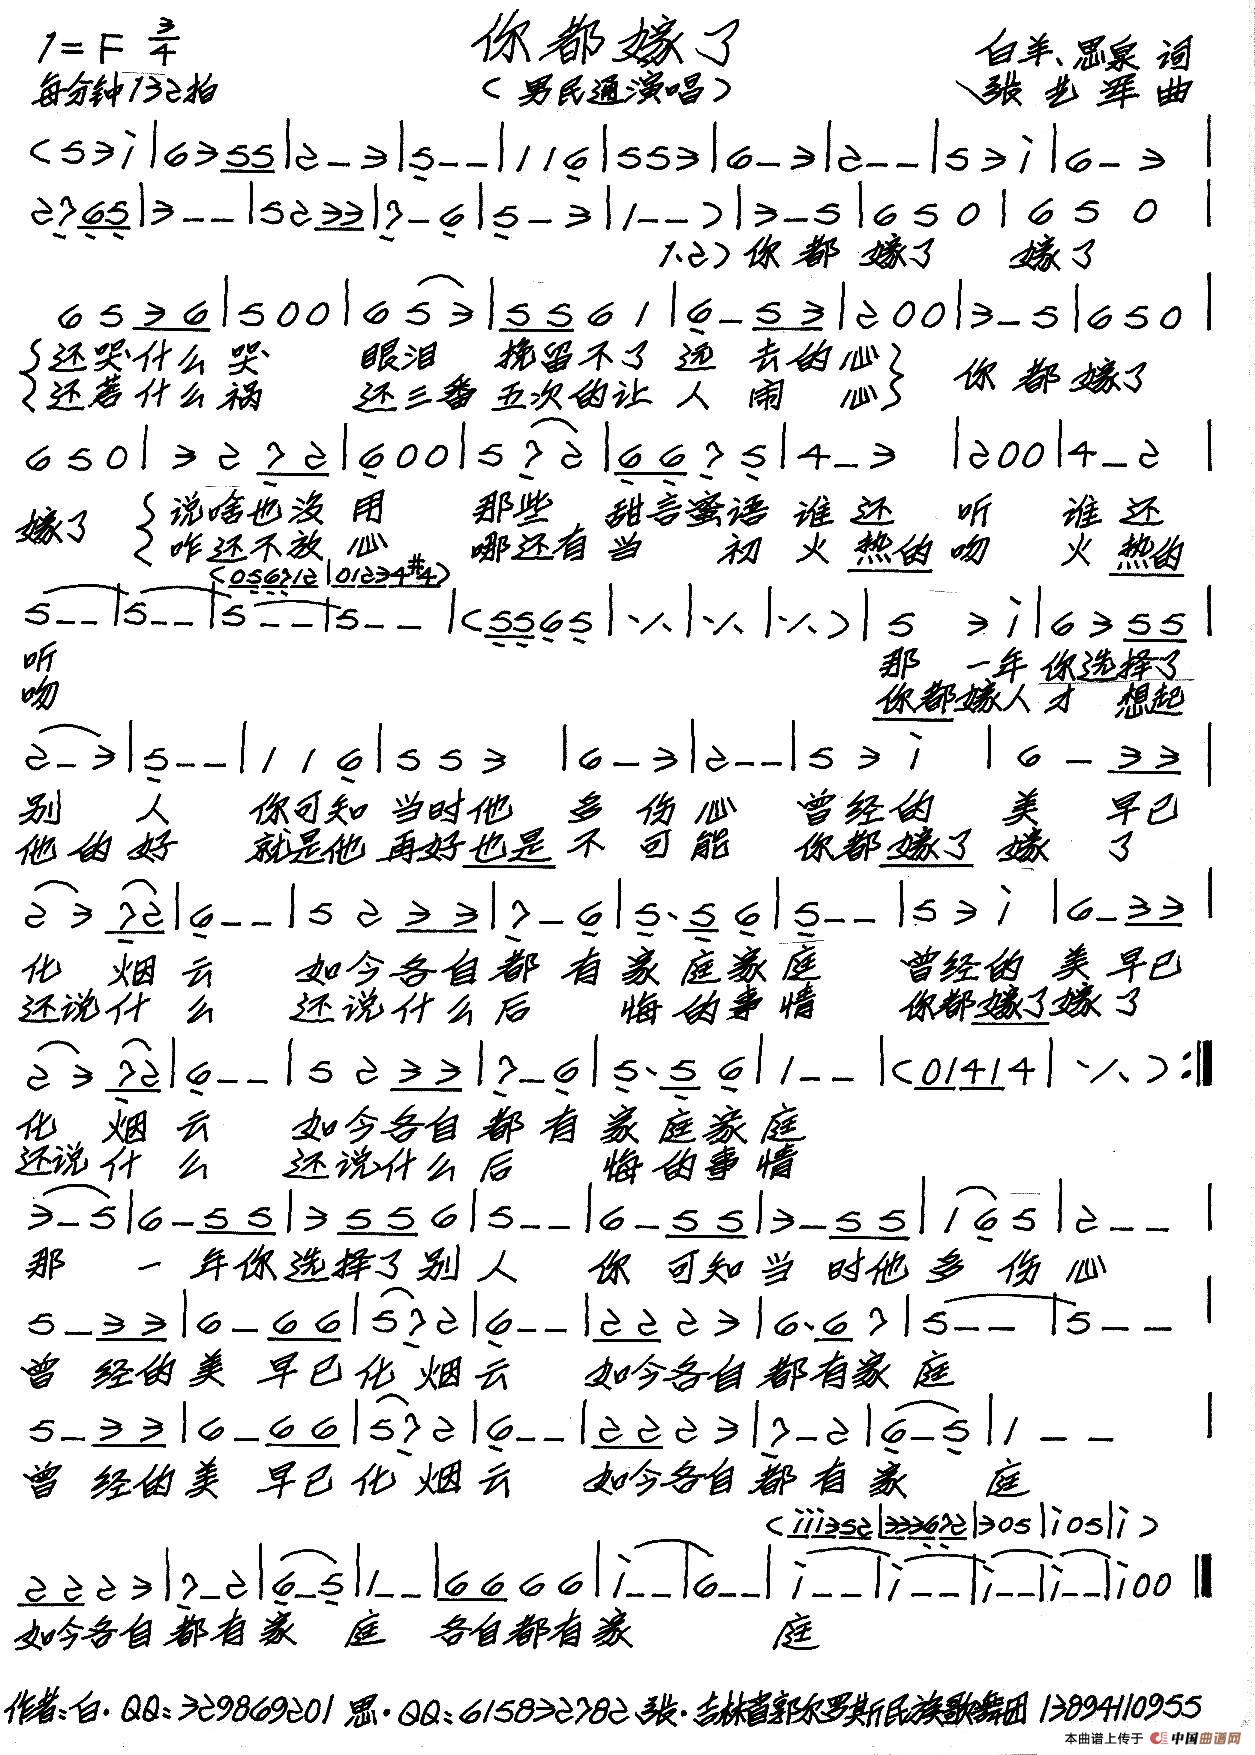 你都嫁了
1=F 3/4
白羊、思泉 词
每分钟132拍
(男民通演唱)
张艺军 曲
(5 3 i|6 3 5 5|2 - 3|5 - -|1 1 6|5 5 3|6 - 3|2 - -|5 3 i|6 - 3|
2 7 6 5|3 - -|5 2 3 3|7 - 6|5 - 3|1 - -)|3 - 5|6 5 0|6 5 0|
1.2)你都嫁了 嫁了
6 5 3 6|5 0 0|6 5 3|5 5 6 1|6 - 5 3|2 0 0|3 - 5|6 5 0|
还哭什么哭 眼泪 挽留不了远去的心 你都嫁了
还惹什么祸 还三番五次的让人闹心
6 5 0|3 2 7 2|6 0 0|5 7 2|6 6 7 5|4 - 3|2 0 0|4 - 2|
嫁了 说啥也没用 那些 甜言蜜语谁还听 谁还
咋还不放心 哪还有当 初火热的吻 火热的
(0 5 6 7 1 2|0 1 2 3 4 #4)
5 - -|5 - -|5 - -|5 - -|(5 5 6 5|·/.|·/.|·/.)|5 3 i|6 3 5 5|
听 那一年你选择了
吻 你都嫁人才想起
2 - 3|5 - -|1 1 6|5 5 3|6 - 3|2 - -|5 3 i|6 - 3 3|
别人 你可知当时他多伤心 曾经的美早已
他的好 就是他再好也是不可能 你都嫁了嫁了
2 3 7 2|6 - -|5 2 3 3|7 - 6|5. 5 6|5 - -|5 3 i|6 - 3 3|
化烟云 如今各自都有家庭家庭 曾经的美早已
还说什么 还说什么后悔的事情 你都嫁了嫁了
2 3 7 2|6 - -|5 2 3 3|7 - 6|5. 5 6|1 - -|(0 1 4 1 4|·/.):‖
化烟云 如今各自都有家庭家庭
还说什么 还说什么后悔的事情
3 - 5|6 - 5 5|3 5 5 6|5 - -|6 - 5 5|3 - 5 5|1 6 5|2 - -|
那一年你选择了别人 你可知当时他多伤心
5 - 3 3|6 - 6 6|5 7 2|6 - -|2 2 2 3|6. 6 7|5 - -|5 - -
曾经的美早已化烟云 如今各自都有家庭
5 - 3 3|6 - 6 6|5 7 2|6 - -|2 2 2 3|7 - 2|6 - 5|1 - -|
曾经的美早已化烟云 如今各自都有家庭
(i i i 3 5 2|3 3 3 6 7 2|3 0 5|i 0 5|i)
2 2 2 3|7 - 2|6 - 5|1 - -|6 6 6 6|i - -|6 - -|i - -|i - -|i - -|i - -|i 0 0‖
如今各自都有家庭 各自都有家庭
作者:白·QQ:329869201 思·QQ:615832782 张·吉林省郭尔罗斯民族歌舞团 13894110955
本曲谱上传于 中国曲谱网